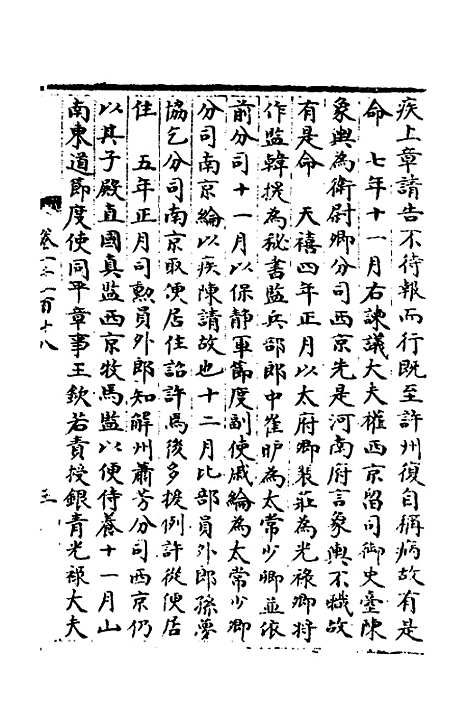 疾上章請告不待報而行既至許州復自稱病故有是
命　七年十一月右諫議大夫權西京留司御史臺陳
象輿為衛尉卿分司西京先是河南府言象輿不職故
有是命　天禧四年正月以太府卿裴莊為光祿卿將
作監韓援為秘書監兵部郎中崔昈為太常少卿並依
前分司十一月以保靜軍節度副使戚綸為太常少卿
分司南京綸以疾陳請故也十二月比部員外郎孫夢
協乞分司南京取便居住詔許焉後多援例許從便居
住　五年正月司勲員外郎知解州蕭芳分司西京仍
以其子殿直國真監西京牧馬監以便侍養十一月山
南東道節度使同平章事王欽若責授銀青光祿大夫
卷一萬一百十八
三